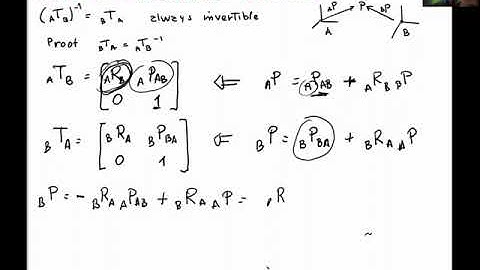 (ATB)⁻¹ = BTA always invertible
Proof BTA = ATB⁻¹
ATB = [ARB APAB 0 1] ⇐ AP = APAB + ARB BP
BTA = [BRA BPBA 0 1] ⇐ BP = BPBA + BRA AP
BP = - BRA APAB + BRA AP = R
AP P BP
A B